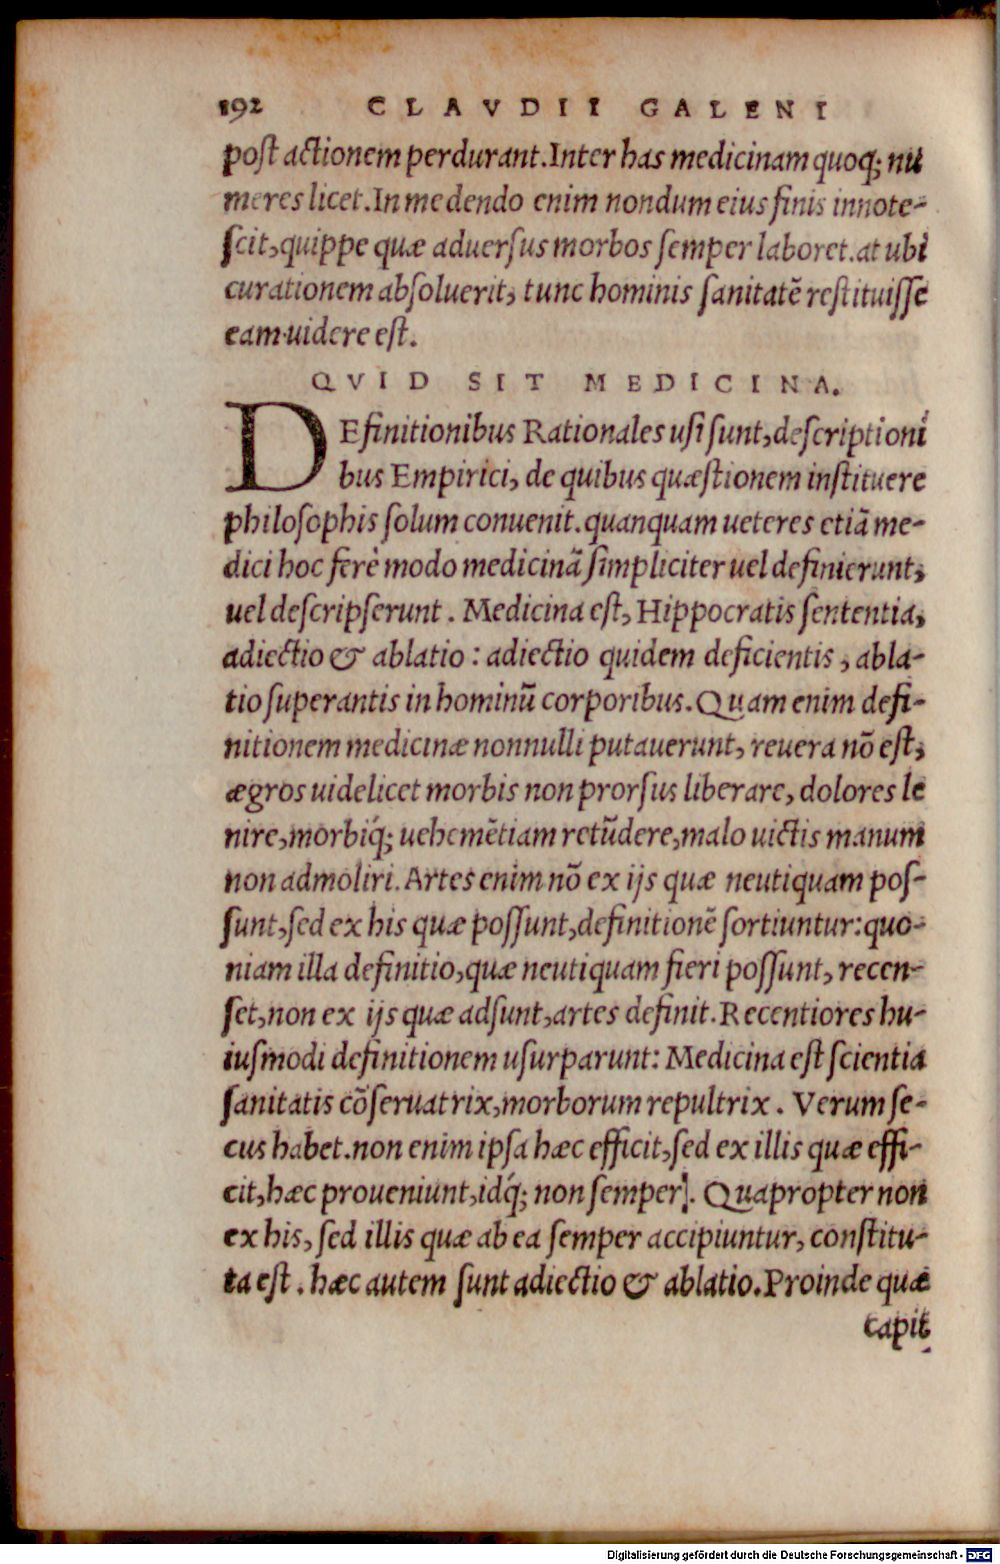 192 CLAVDII GALENI
post actionem perdurant. Inter has medicinam quoq; nu
meres licet. In medendo enim nondum eius finis innote-
scit, quippe quæ aduersus morbos semper laboret. at ubi
curationem absoluerit, tunc hominis sanitatē restituisse
eam uidere est.
QVID SIT MEDICINA.
DEfinitionibus Rationales usi sunt, descriptioni
bus Empirici, de quibus quæstionem instituere
philosophis solum conuenit. quanquam ueteres etiā me-
dici hoc ferè modo medicinā simpliciter uel definierunt,
uel descripserunt. Medicina est, Hippocratis sententia,
adiectio & ablatio: adiectio quidem deficientis, abla-
tio superantis in hominū corporibus. Quam enim defi-
nitionem medicinæ nonnulli putauerunt, reuera nō est,
ægros uidelicet morbis non prorsus liberare, dolores le
nire, morbiq́; uehemētiam retūdere, malo uictis manum
non admoliri. Artes enim nō ex ijs quæ neutiquam pos-
sunt, sed ex his quæ possunt, definitionē sortiuntur: quo-
niam illa definitio, quæ neutiquam fieri possunt, recen-
set, non ex ijs quæ adsunt, artes definit. Recentiores hu-
iusmodi definitionem usurparunt: Medicina est scientia
sanitatis cōseruatrix, morborum repultrix. Verum se-
cus habet. non enim ipsa hæc efficit, sed ex illis quæ effi-
cit, hæc proueniunt, idq́; non semper. Quapropter non
ex his, sed illis quæ ab ea semper accipiuntur, constitu-
ta est. hæc autem sunt adiectio & ablatio. Proinde quæ
capit
Digitalisierung gefördert durch die Deutsche Forschungsgemeinschaft - DFG